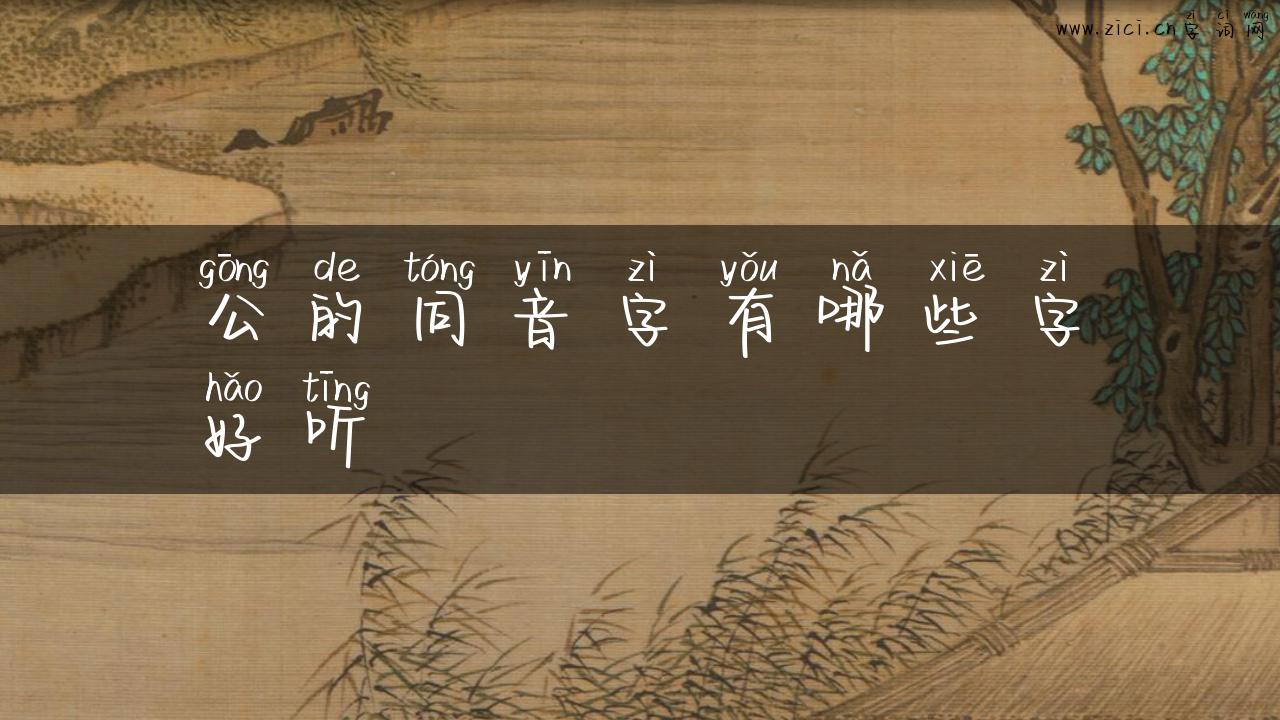 zì cí wǎng
www.zici.cn字词网
gōng de tóng yīn zì yǒu nǎ xiē zì
公的同音字有哪些字
hǎo tīng
好听